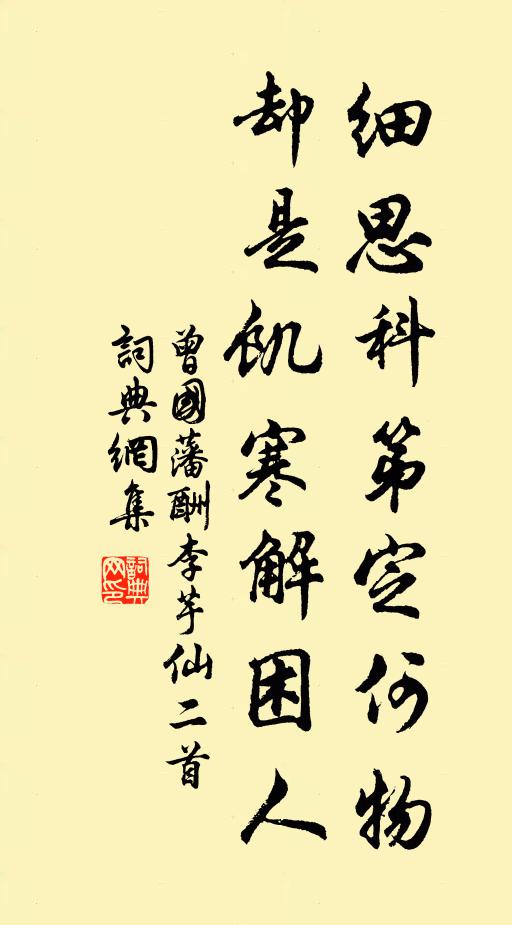 细思科第定何物
却是饥寒解困人
曾國藩酬李芋仙二首
詞典網集
詞典网印